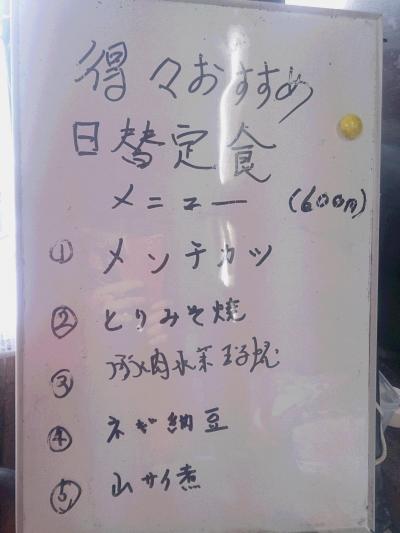 得々おすすめ
日替定食
メニュー (600円)
① メンチカツ
② とりみそ焼
③ 豚肉水菜玉子
④ ネギ納豆
⑤ 山サイ煮